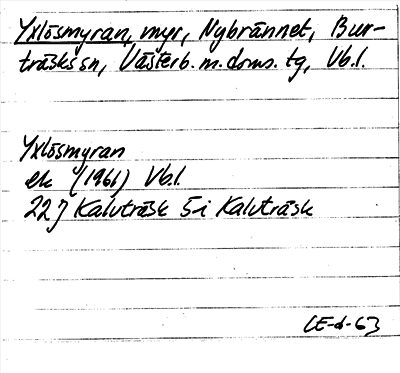 Yxlösmyran, myr, Nybrännet, Bur-
träsks sn, Västerb. m. doms. tg, Vb.l.
Yxlösmyran
ek (1961) Vb.l.
22 J Kalvträsk 5-i Kalvträsk
CE-d-63